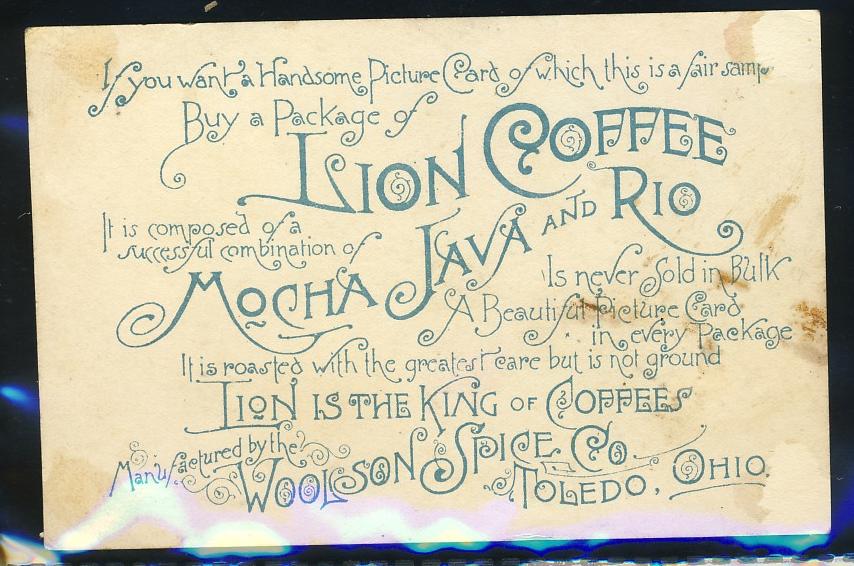 If you want a Handsome Picture Card of which this is a fair
Buy a Package of
LION COFFEE
It is composed of a
successful combination of
MOCHA JAVA AND RIO
Is never Sold in Bulk
A Beautiful Picture Card
in every Package
It is roasted with the greatest care but is not ground
LION IS THE KING OF COFFEES
Manufactured by the
WOOLSON SPICE CO.
TOLEDO, OHIO.